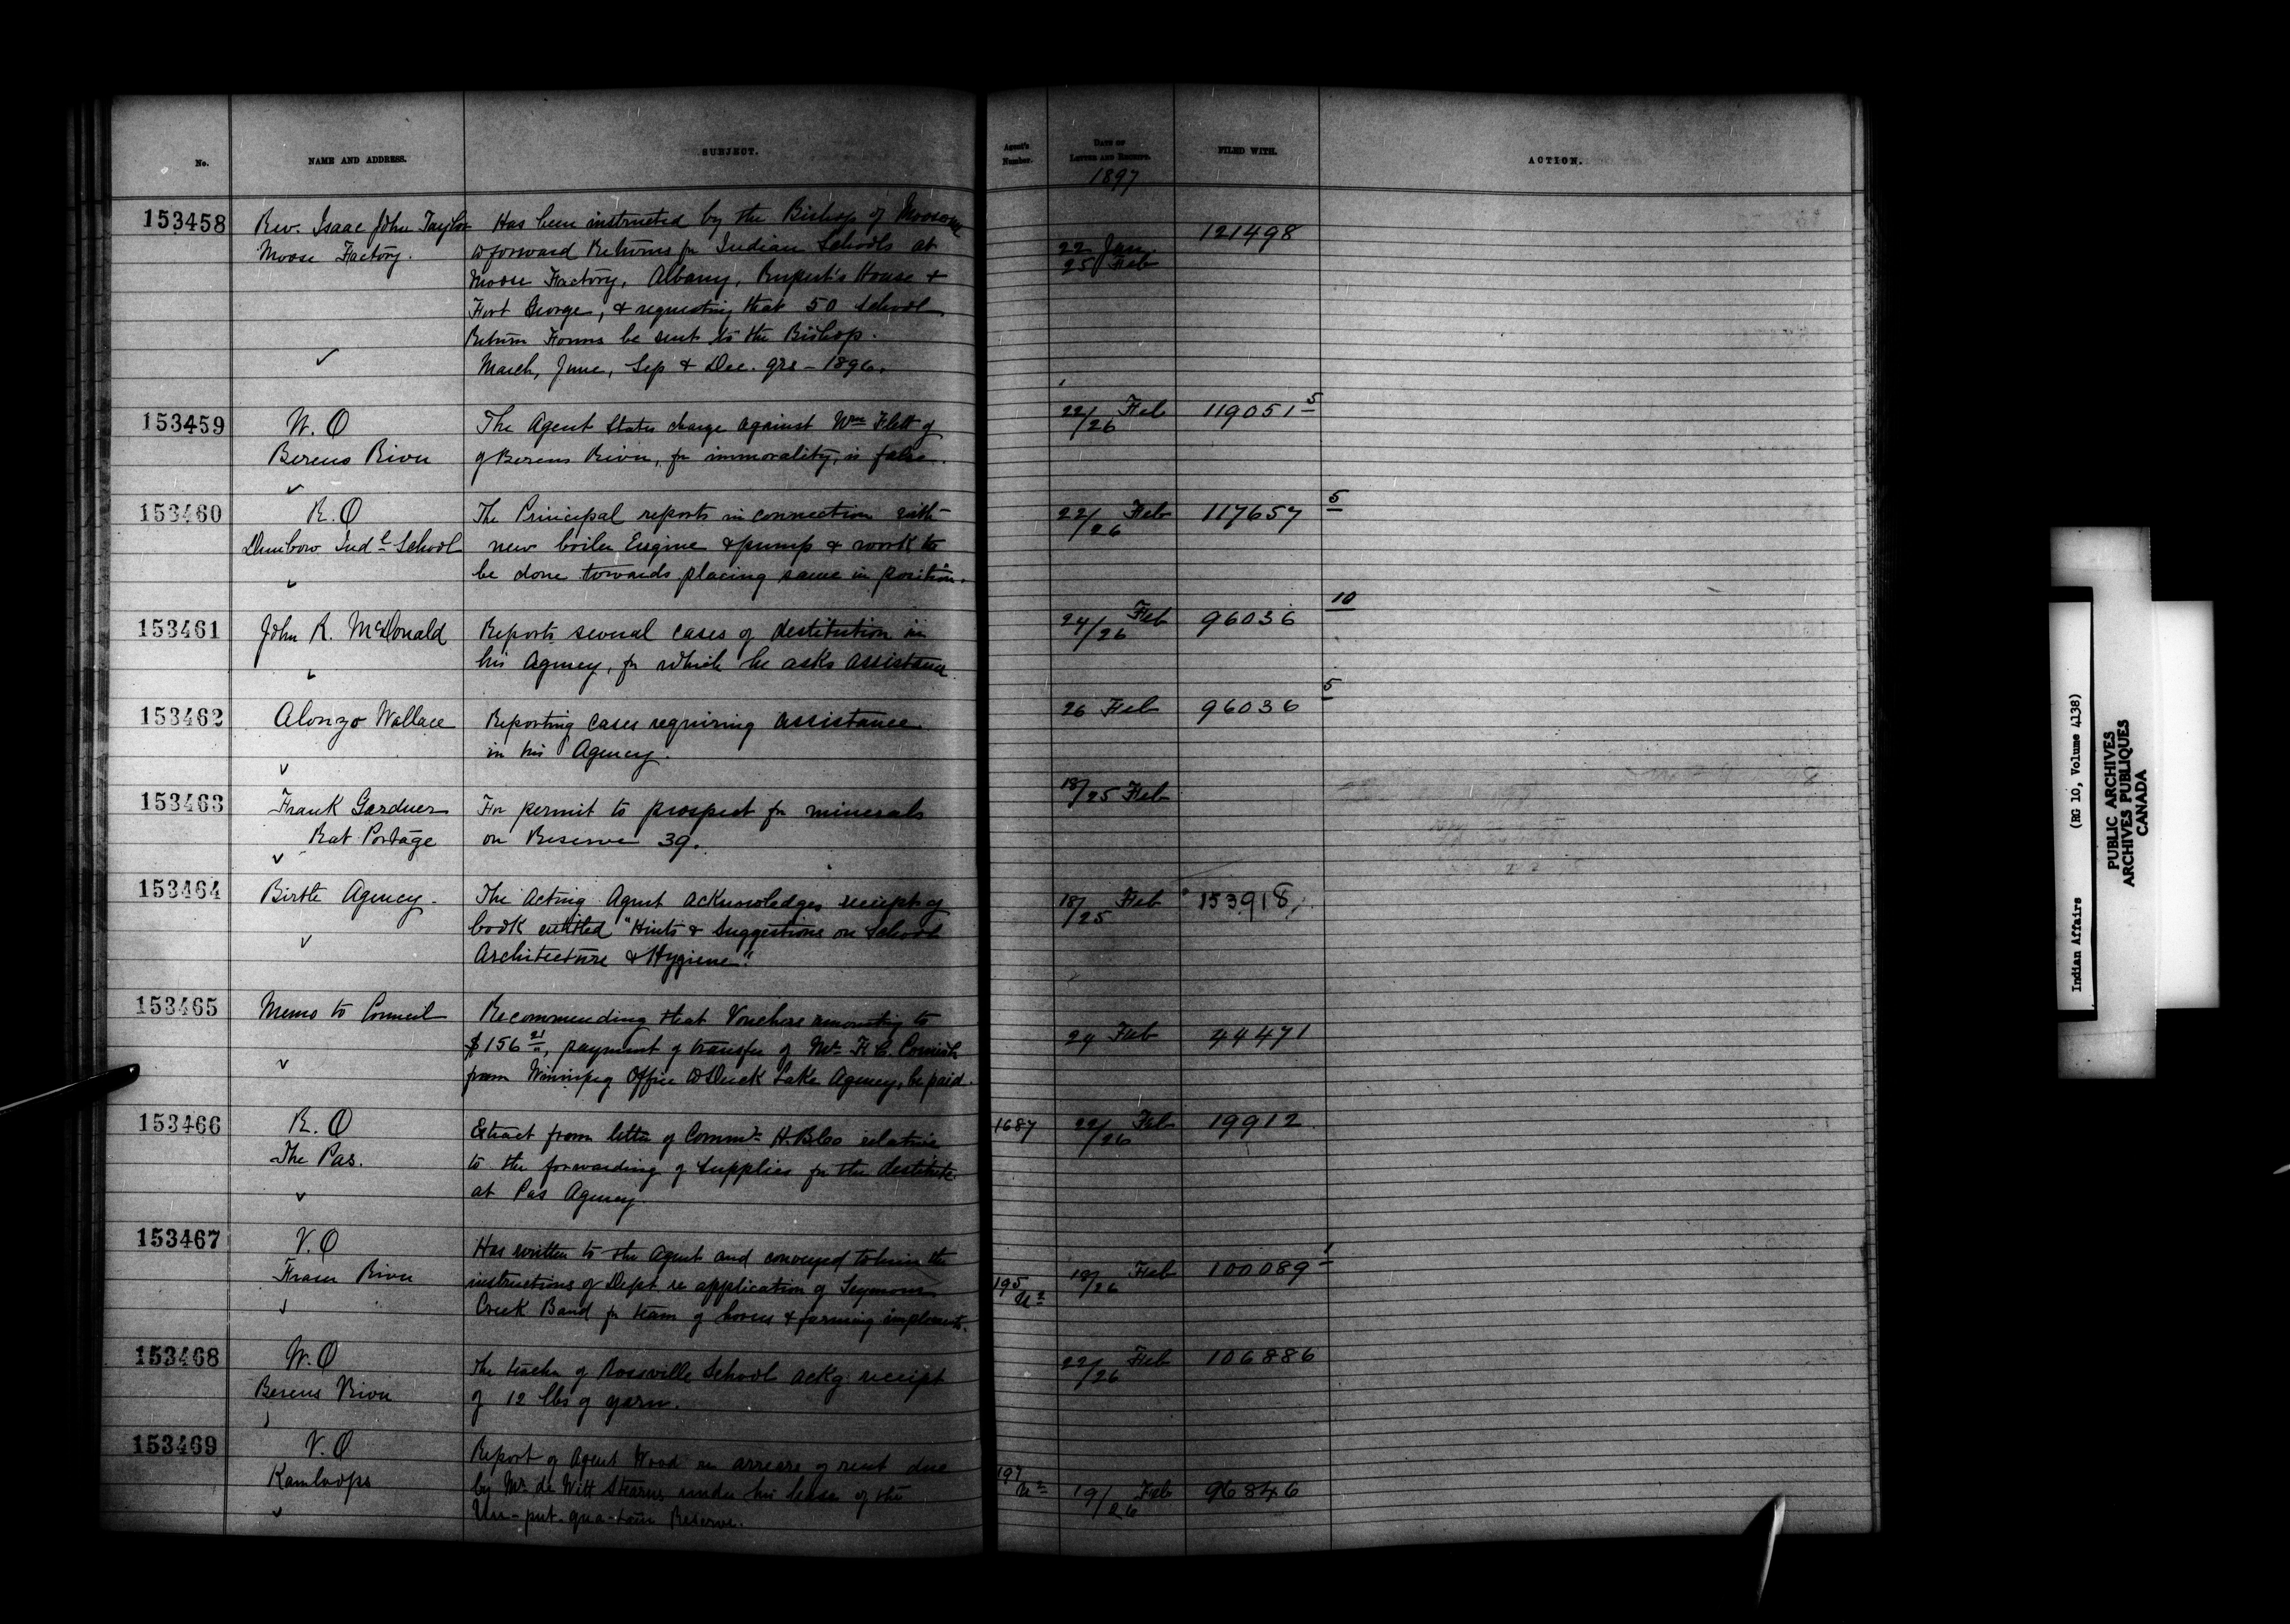 No.
NAME AND ADDRESS.
SUBJECT.
Agent's Number.
DATE OF LETTER AND RECEIPT.
FILED WITH.
ACTION.
1897
153458
Rev. Isaac John Taylor
Moose Factory.
Has been instructed by the Bishop of Moosonee
to forward Returns for Indian Schools at
Moose Factory, Albany, Rupert's House &
Fort George, & requesting that 50 School
Return Forms be sent to the Bishop.
March, June, Sep & Dec. qrs - 1896.
22 Jan.
25 Feb
121498
153459
W. O
Berens River
The Agent States charge against Wm Flett of
of Berens River, for immorality, is false.
22/26 Feb
119051 5
153460
R. O
Dunbow Indl School
The Principal reports in connection with
new boiler Engine & pump & work to
be done towards placing same in position.
22/26 Feb
117657
5
153461
John R. McDonald
Reports several cases of destitution in
his Agency, for which he asks assistance.
24/26 Feb
96036
10
153462
Alonzo Wallace
Reporting cases requiring assistance
in his Agency.
26 Feb
96036
5
153463
Frank Gardner
Rat Portage
For permit to prospect for minerals
on Reserve 39.
18/25 Feb
153464
Birtle Agency.
The Acting Agent acknowledges receipt of
book entitled "Hints & Suggestions on School
Architecture & Hygiene".
18/25 Feb
153918
153465
Memo to Council
Recommending that Vouchers amounting to
$156 21, payment of transfer of Mr. F. C. Cornish
from Winnipeg Office to Duck Lake Agency, be paid.
24 Feb
44471
153466
R. O
The Pas.
Extract from letter of Commr H. B. Co relative
to the forwarding of Supplies for the destitute
at Pas Agency.
1687
22/26 Feb
19912
153467
V. O
Fraser River
Has written to the Agent and conveyed to him the
instructions of Dept. re application of Seymour
Creek Band for team of horses & farming implements.
195
18/26 Feb
100089 1
153468
W. O
Berens River
The teacher of Rossville School ackg. receipt
of 12 lbs of yarn.
22/26 Feb
106886
153469
V. O
Kamloops
Report of Agent Wood re arrears of rent due
by Mr. de Witt Stearns under his lease of the
Un-put-qua-tum Reserve.
197
19/26 Feb
96846
Indian Affairs (RG 10, Volume 4138)
PUBLIC ARCHIVES
ARCHIVES PUBLIQUES
CANADA